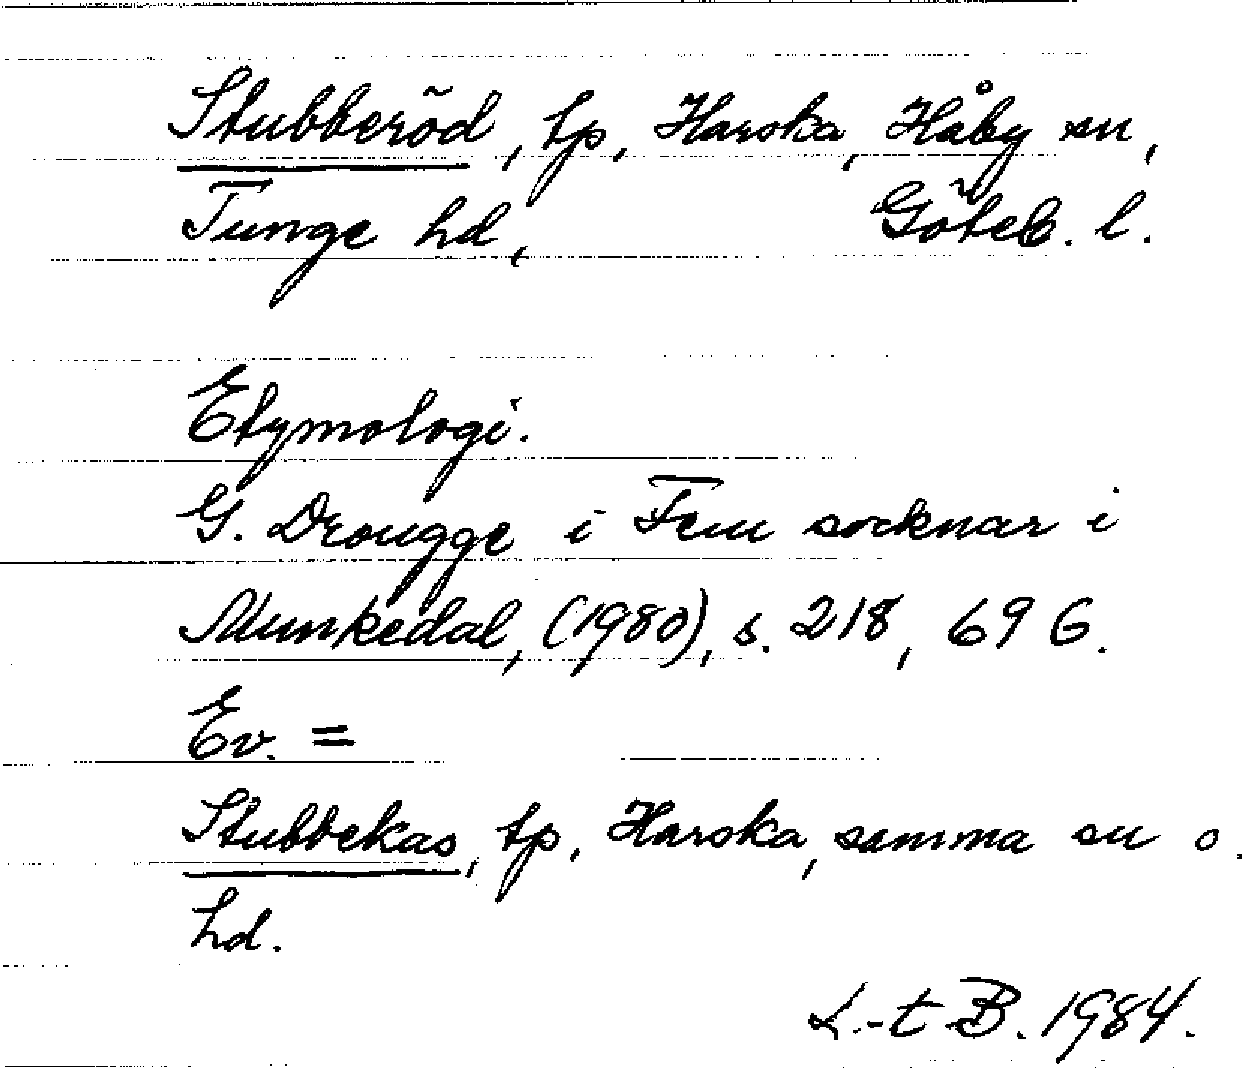 Stubberöd, tp, Harska, Håby sn,
Tunge hd, Göteb. l.
Etymologi.
G. Drougge i Fem socknar i
Munkedal, (1980), s. 218, 696.
Ev. =
Stubbekas, tp, Harska, samma sn o.
hd.
L.-t B. 1984.